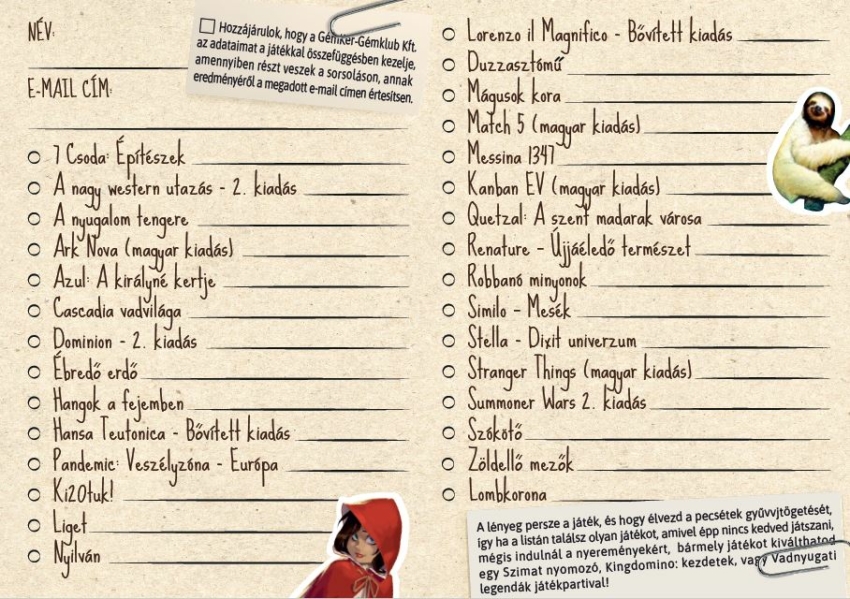 NÉV:
Hozzájárulok, hogy a Gémker-Gémklub Kft.
az adataimat a játékkal összefüggésben kezelje,
amennyiben részt veszek a sorsoláson, annak
eredményéről a megadott e-mail címen értesítsen.
E-MAIL CÍM:
7 Csoda: Építészek
A nagy western utazás - 2. kiadás
A nyugalom tengere
Ark Nova (magyar kiadás)
Azul: A királyné kertje
Cascadia vadvilága
Dominion - 2. kiadás
Ébredő erdő
Hangok a fejemben
Hansa Teutonica - Bővített kiadás
Pandemic: Veszélyzóna - Európa
Ki20tuk!
Liget
Nyilván
Lorenzo il Magnifico - Bővített kiadás
Duzzasztómű
Mágusok kora
Match 5 (magyar kiadás)
Messina 1347
Kanban EV (magyar kiadás)
Quetzal: A szent madarak városa
Renature - Újjáéledő természet
Robbanó minyonok
Similo - Mesék
Stella - Dixit univerzum
Stranger Things (magyar kiadás)
Summoner Wars 2. kiadás
Szókötő
Zöldellő mezők
Lombkorona
A lényeg persze a játék, és hogy élvezd a pecsétek gyűvvjtögetését,
így ha a listán találsz olyan játékot, amivel épp nincs kedved játszani,
mégis indulnál a nyereményekért, bármely játékot kiválthatod
egy Szimat nyomozó, Kingdomino: kezdetek, vagy Vadnyugati
legendák játékpartival!